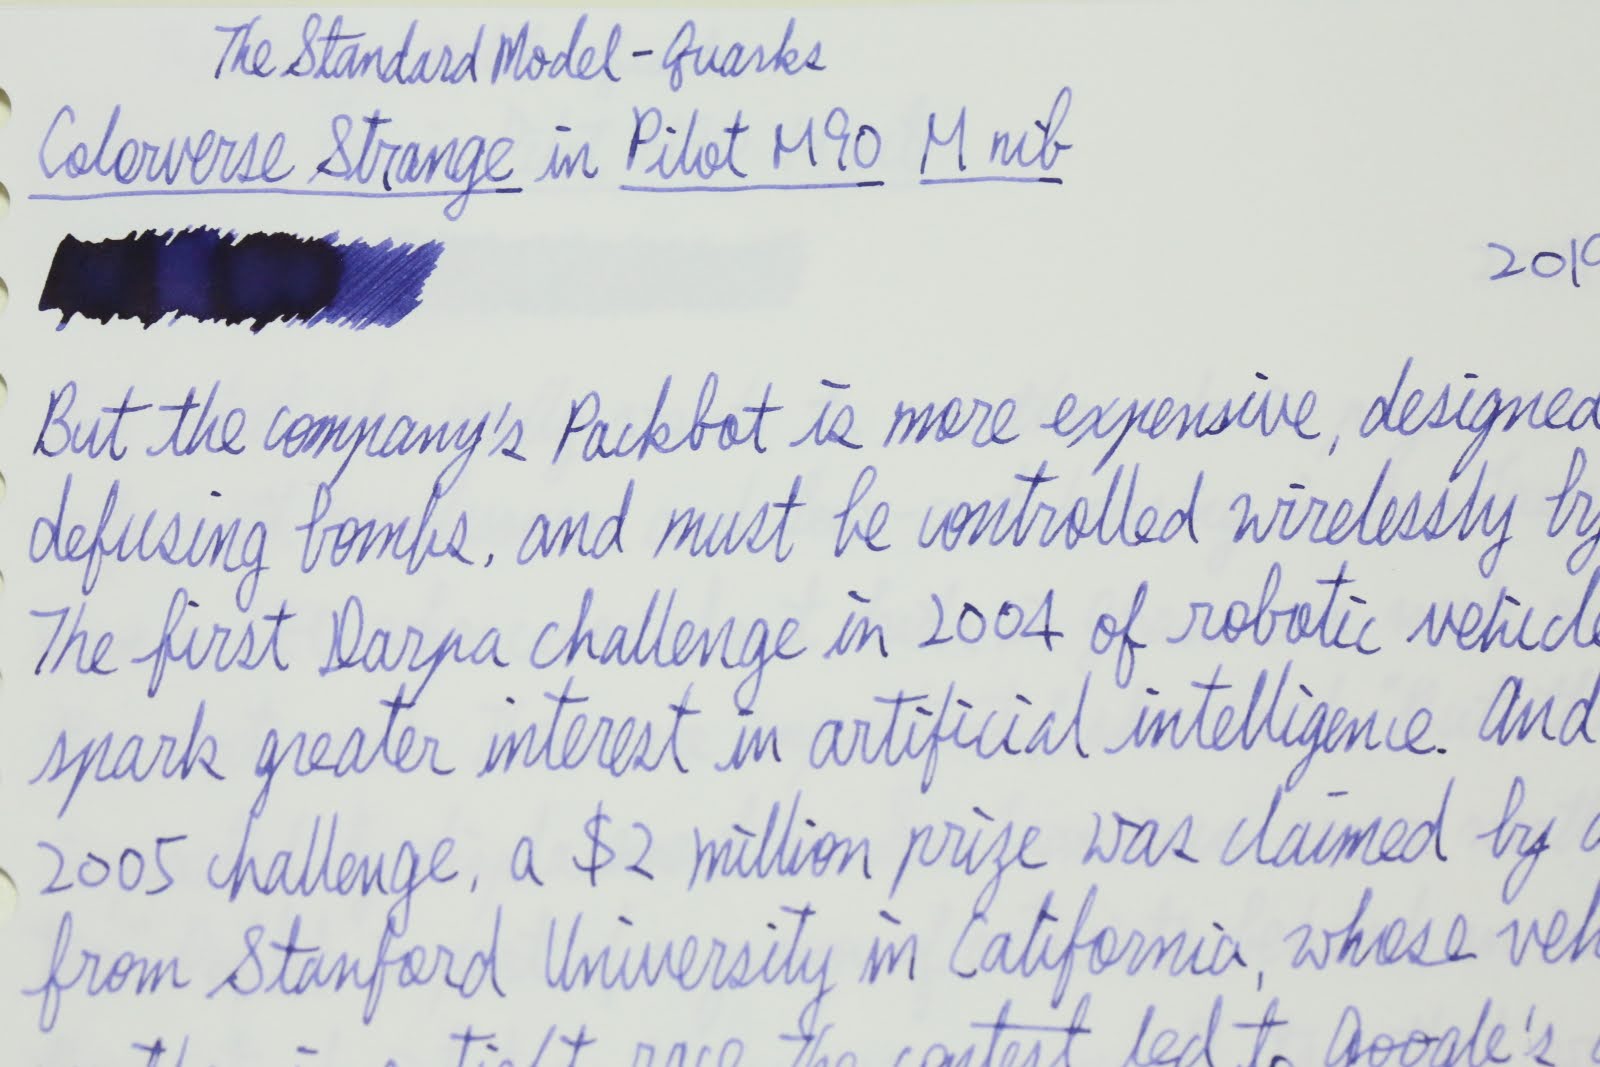 The Standard Model - Quarks
Colorverse Strange in Pilot M90 M nib
2019
But the company's Packbot is more expensive, designed
defusing bombs, and must be controlled wirelessly by
The first Darpa challenge in 2004 of robotic vehicle
spark greater interest in artificial intelligence. And
2005 challenge, a $2 million prize was claimed by a
from Stanford University in California, whose veh
in a tight race. The contest led to Google's